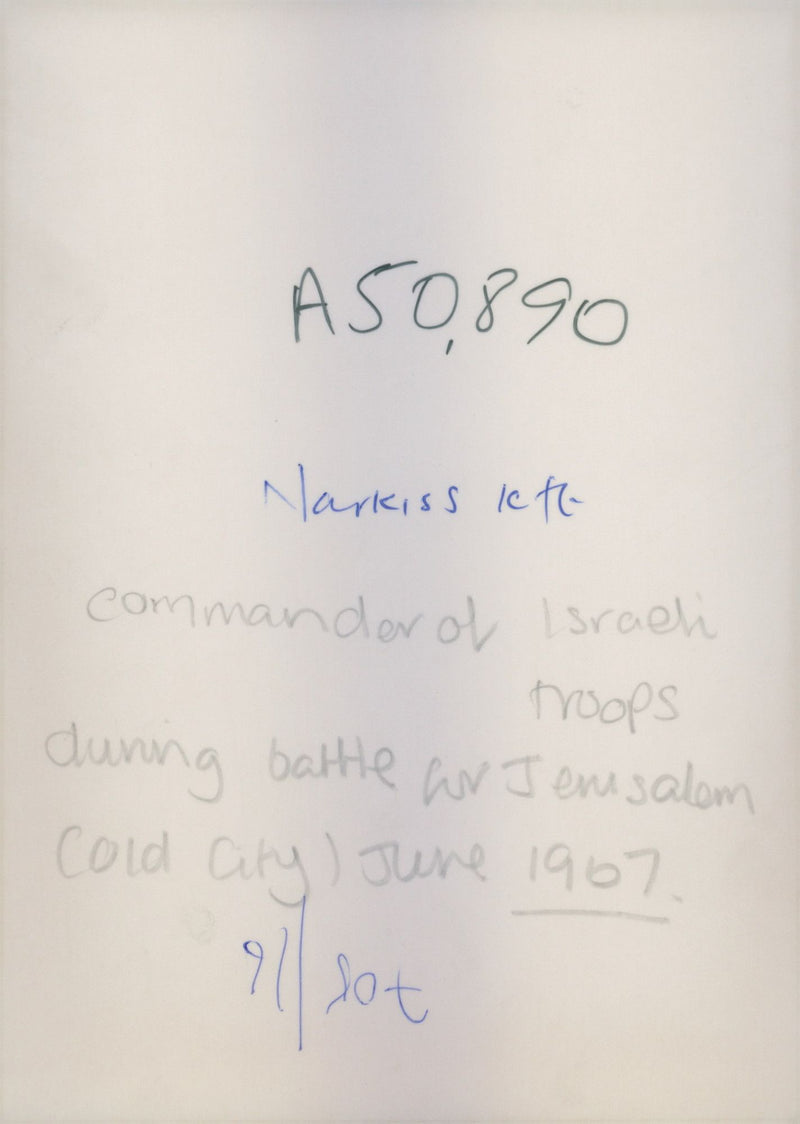 A50,890
Narkiss left
commander of Israeli
troops
during battle for Jerusalem
(Old City) June 1967.